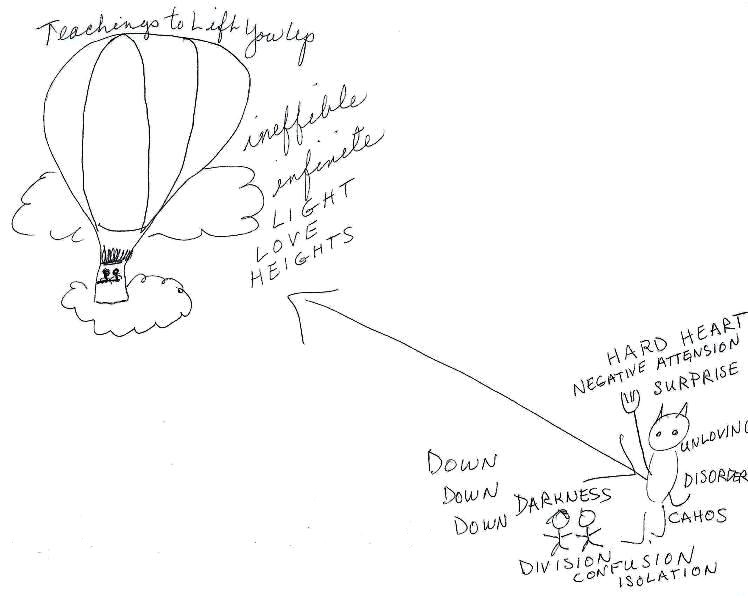 Teachings to Lift You Up
ineffible
infinite
LIGHT
LOVE
HEIGHTS
HARD HEART
NEGATIVE ATTENSION
SURPRISE
UNLOVING
DISORDER
CAHOS
DOWN
DOWN
DOWN DARKNESS
DIVISION
CONFUSION
ISOLATION